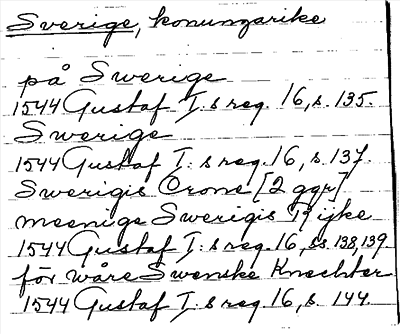 Sverige, konungarike
på Swerige
1544 Gustaf I:s reg. 16, s. 135.
Swerige
1544 Gustaf I:s reg. 16, s. 137.
Swerigis Crone [2 ggr]
meenige Swerigis Rijke
1544 Gustaf I:s reg. 16, ss. 138, 139
för wåre Swenske Knechter
1544 Gustaf I:s reg. 16, s. 144.